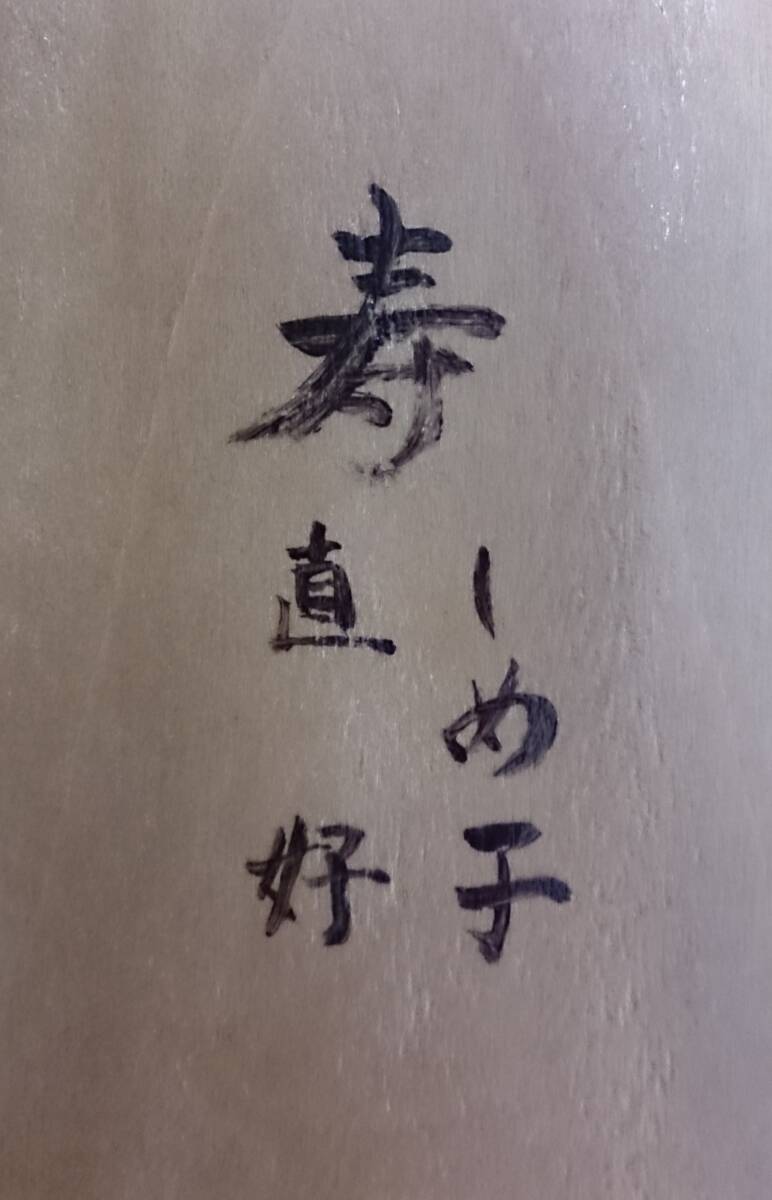 寿
しめ子
直好